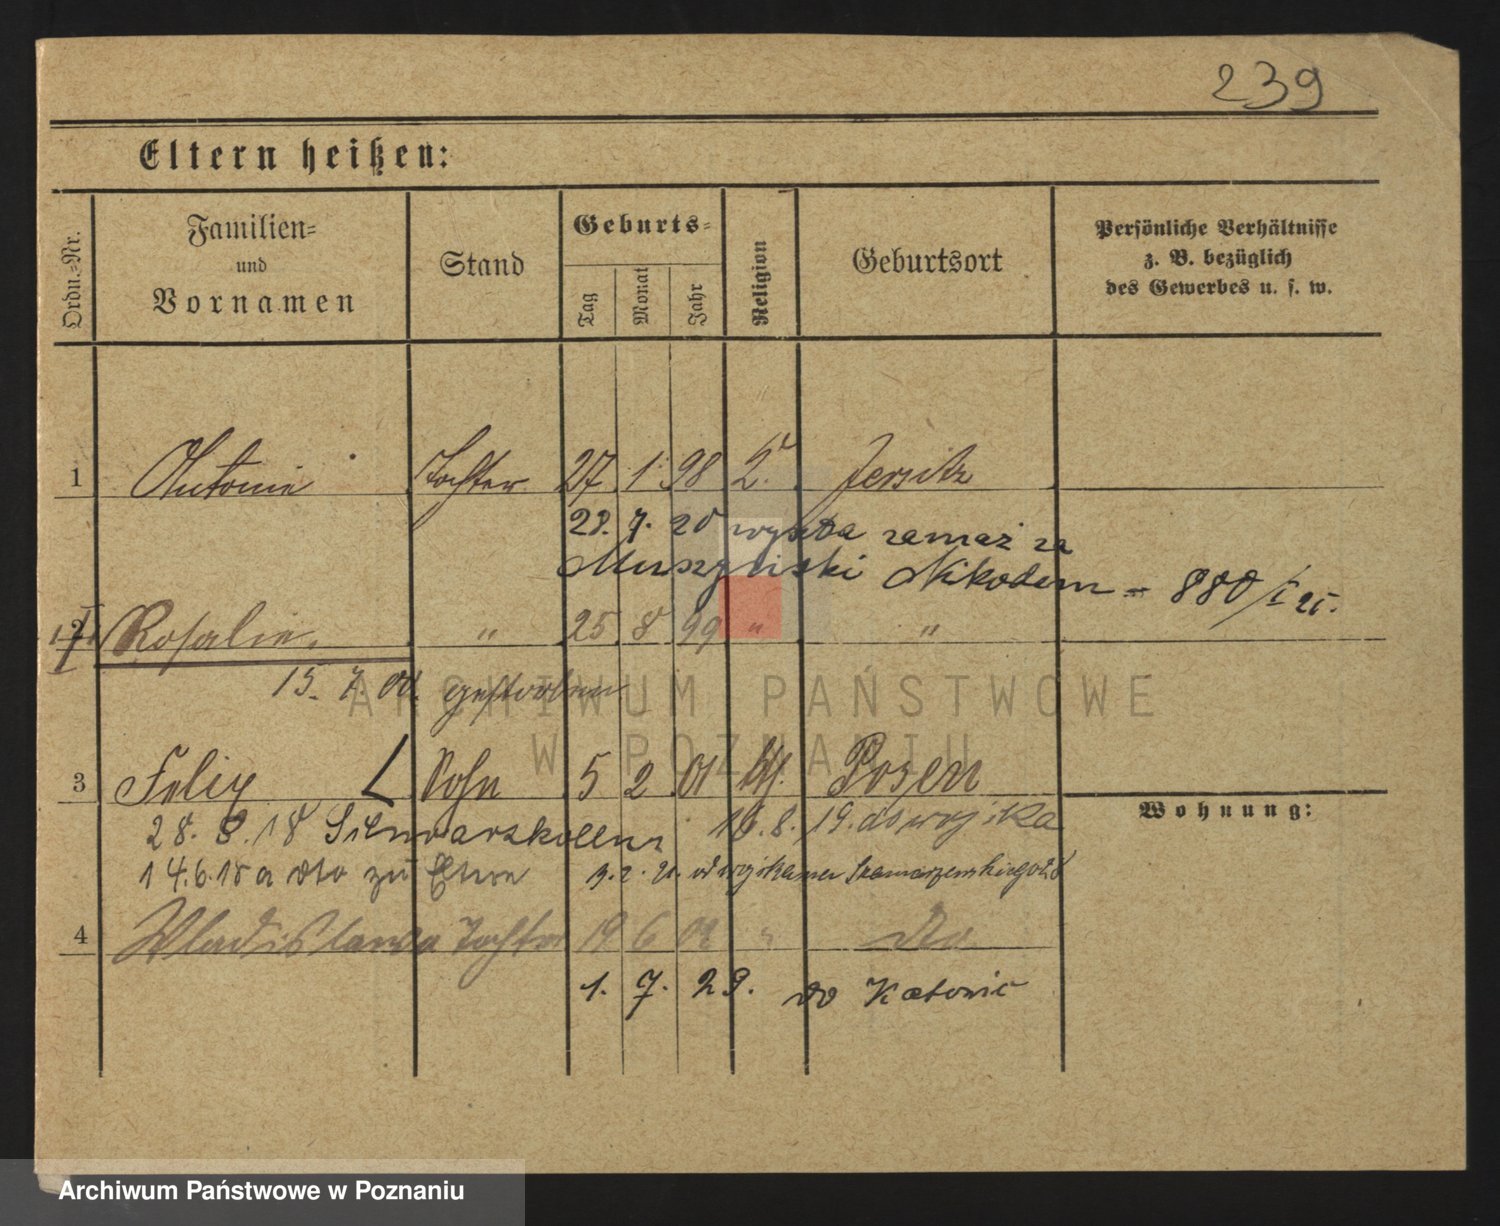 239
Eltern heißen:
Ordn.=Nr.
Familien=
und
Vornamen
Stand
Geburts=
Tag
Monat
Jahr
Religion
Geburtsort
Persönliche Verhältnisse
z. B. bezüglich
des Gewerbes u. s. w.
1 Antonie Tochter 27 1. 98 Jersitz
28. 7. 20 wyszła zamąż za
Muszyński Nikodem = 880/I 21.
2 Rosalie " 25 8 99 " "
15. 7. 00. gestorben
3 Felix Sohn 5 2 01 Posen
Wohnung:
28. 8. 18 18. 8. 19. do wojska
14.6.18 a dto zu 9. 2. 21. od wojska
4 Wladislawa Tochter 19 6 02 " dto
1. 7. 29. do Katowic
ARCHIWUM PAŃSTWOWE
W POZNANIU
Archiwum Państwowe w Poznaniu